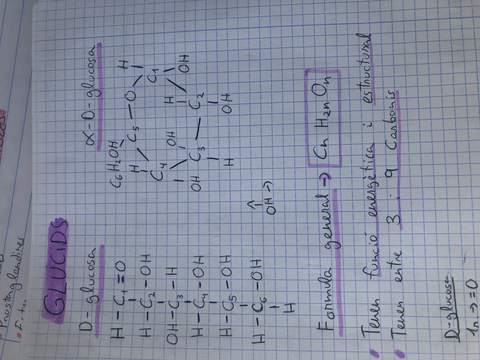 • Prostaglandines
GLUCIDS
D-glucosa
H - C1 = O
H - C2 - OH
OH - C3 - H
H - C4 - OH
H - C5 - OH
H - C6 - OH
H
OH →
α-D-glucosa
C6H2OH
C5 — O
H
H
C4
OH
H
C1
OH
OH
C3 — C2
H
OH
Formula general → Cn H2n On
• Tenen funció energètica i estructural
• Tenen entre 3 i 9 Carbonis
D-glucosa